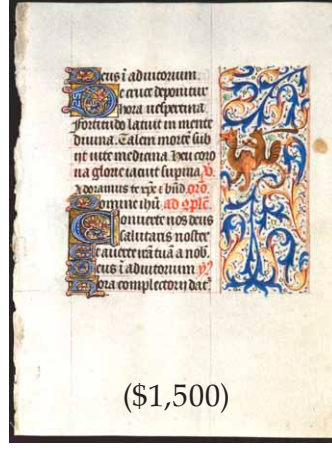 Deus i adiutorium.
De cruce deponitur
hora uespertina.
fortitudo latuit in mente
diuina. Talem mortē sub
iit uite medicina. heu coro
na glorie iacuit supina. v.
Adoramus te xp̄e ⁊ bn̄d. oro.
Domine ihū. ad 9plē.
Conuerte nos deus
salutaris noster
Et auerte irā tuā a nob.
Deus ī adiutorium. v̄.
Hora completorij dat̄.
($1,500)